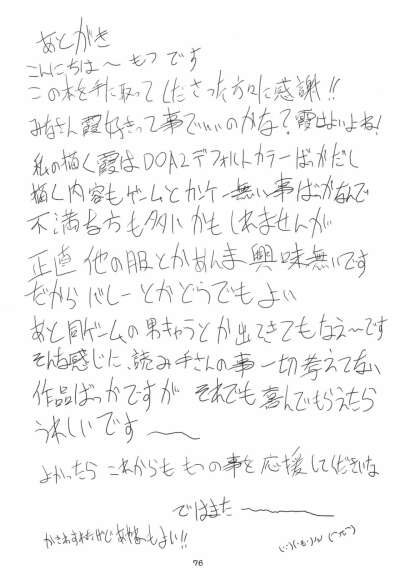 あとがき
こんにちは〜 もつです
この本を手に取ってくださった方々に感謝!!
みなさん霞好きって事でいいのかな?霞はよいよね!
私の描く霞はDOA2デフォルトカラーばっかだし
描く内容もゲームとカンケー無い事ばっかなんで
不満ある方も多いかもしれませんが
正直他の服とかあんま興味無いです
だからバレーとかどうでもよい
あと同ゲームの男キャラとか出てきてもなえ〜です
そんな感じに、読み手さんの事一切考えてない
作品ばっかですが それでも喜んでもらえたら
うれしいです
よかったら これからも もつの事を応援してくださいな
ではまた
もよい!!
76